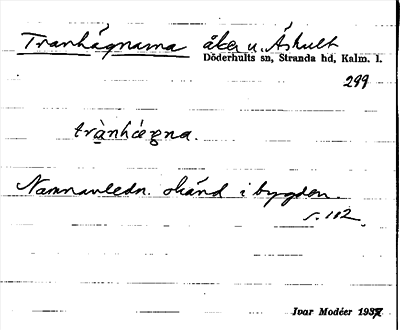 Tranhägnarna åker u. Åshult
Döderhults sn, Stranda hd, Kalm. l.
299
trànhægna.
Namnavledn. okänd i bygden.
s. 112.
Ivar Modéer 1937